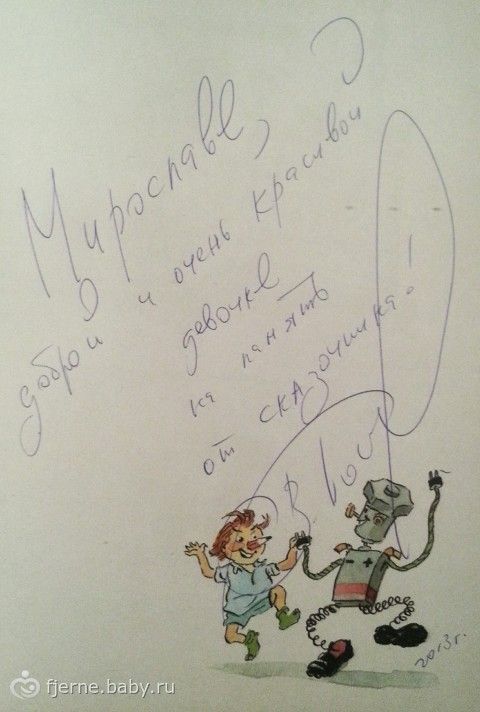 Мирославе,
доброй и очень красивой
девочке
на память
от сказочника!
2013г.
fjerne.baby.ru